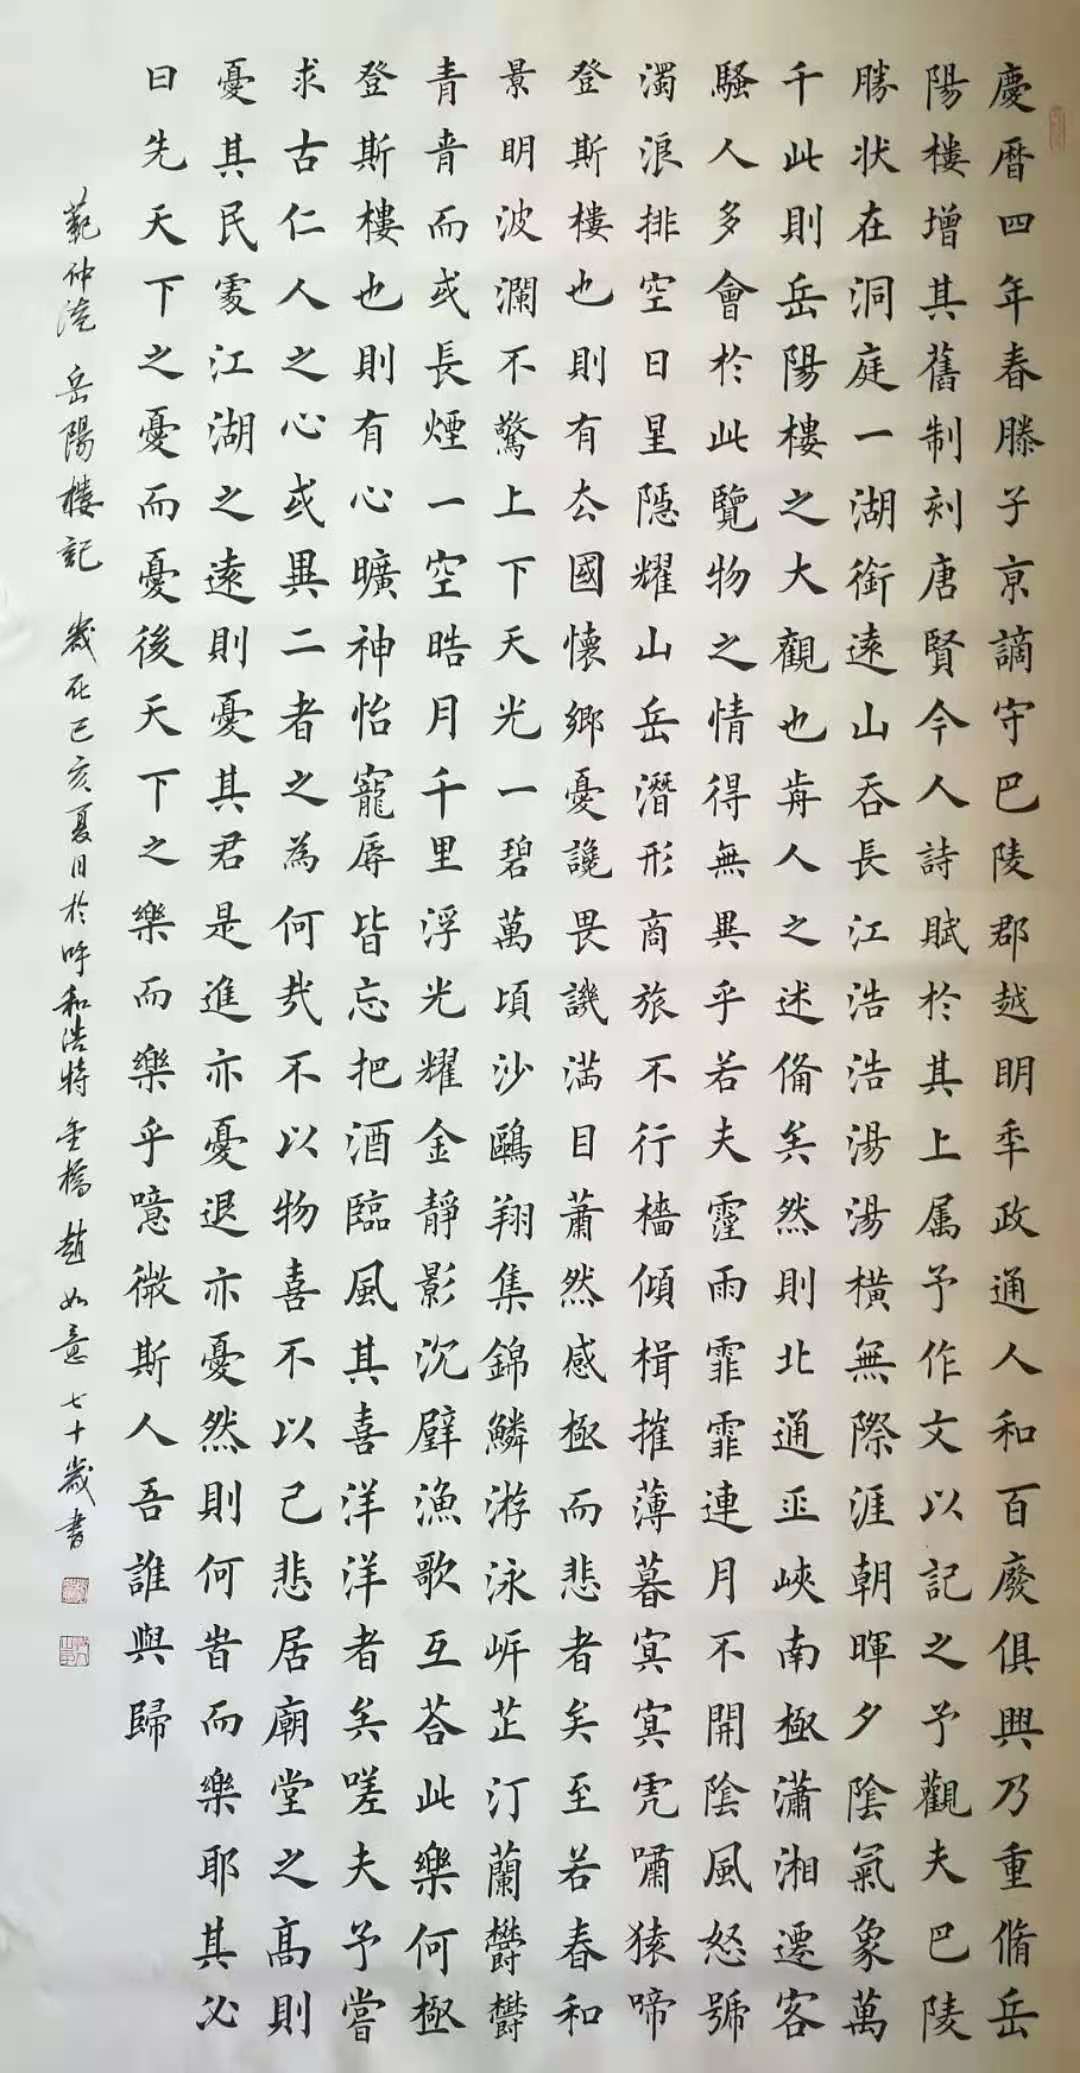 慶曆四年春滕子京謫守巴陵郡越明年政通人和百廢俱興乃重脩岳
陽樓增其舊制刻唐賢今人詩賦於其上属予作文以記之予觀夫巴陵
勝状在洞庭一湖銜遠山吞長江浩浩湯湯橫無際涯朝暉夕陰氣象萬
千此則岳陽樓之大觀也前人之述備矣然則北通巫峽南極瀟湘遷客
騷人多會於此覽物之情得無異乎若夫霪雨霏霏連月不開陰風怒號
濁浪排空日星隱耀山岳潛形商旅不行檣傾楫摧薄暮冥冥虎嘯猿啼
登斯樓也則有去國懷鄉憂讒畏譏滿目蕭然感極而悲者矣至若春和
景明波瀾不驚上下天光一碧萬頃沙鷗翔集錦鱗游泳岸芷汀蘭欝欝
青青而或長煙一空皓月千里浮光耀金靜影沉璧漁歌互荅此樂何極
登斯樓也則有心曠神怡寵辱皆忘把酒臨風其喜洋洋者矣嗟夫予嘗
求古仁人之心或異二者之為何哉不以物喜不以己悲居廟堂之高則
憂其民處江湖之遠則憂其君是進亦憂退亦憂然則何時而樂耶其必
曰先天下之憂而憂後天下之樂而樂乎噫微斯人吾誰與歸
范仲淹 岳陽樓記 歲在己亥夏日於呼和浩特金橋 趙如意七十歲書